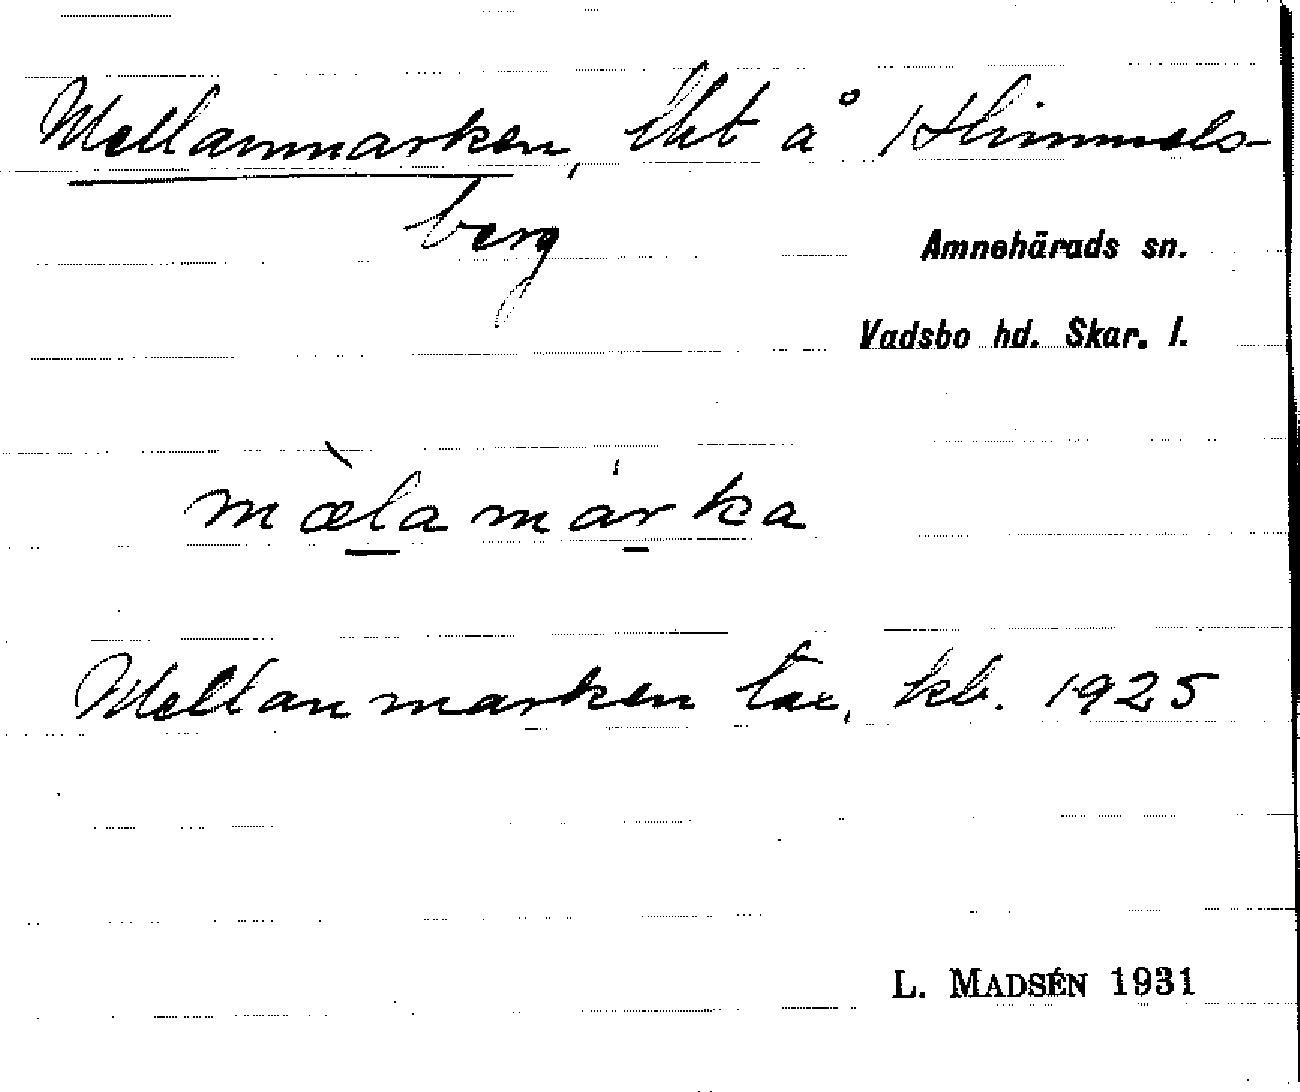 Mellanmarken, lht å Himmels-
berg
Amnehärads sn.
Vadsbo hd. Skar. l.
mæ̀lamárka
Mellanmarken tax. kb. 1925
L. MADSÉN 1931